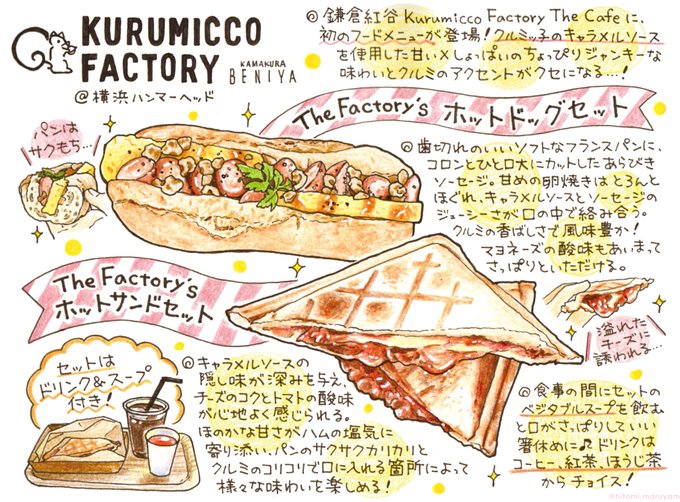 KURUMICCO
FACTORY
KAMAKURA
BENIYA
@横浜ハンマーヘッド
◎鎌倉紅谷 Kurumicco Factory The Cafeに、
初のフードメニューが登場！クルミッ子のキャラメルソース
を使用した甘い×しょっぱいのちょっぴりジャンキーな
味わいとクルミのアクセントがクセになる…！
The Factory's ホットドッグセット
パンは
サクもち…
◎歯切れのいいソフトなフランスパンに、
コロンとひと口大にカットしたあらびき
ソーセージ。甘めの卵焼きはとろんと
ほぐれ、キャラメルソースとソーセージの
ジューシーさが口の中で絡み合う。
クルミの香ばしさで風味豊か！
マヨネーズの酸味もあいまって
さっぱりといただける。
The Factory's
ホットサンドセット
溢れた
チーズに
誘われる…
セットは
ドリンク&スープ
付き！
◎キャラメルソースの
隠し味が深みを与え、
チーズのコクとトマトの酸味
が心地よく感じられる。
ほのかな甘さがハムの塩気に
寄り添い、パンのサクサクカリカリと
クルミのコリコリで口に入れる箇所によって
様々な味わいを楽しめる！
◎食事の間にセットの
ベジタブルスープを飲む
と口がさっぱりしていい
箸休めに♫ドリンクは
コーヒー、紅茶、ほうじ茶
からチョイス！
©hitomi maruyama